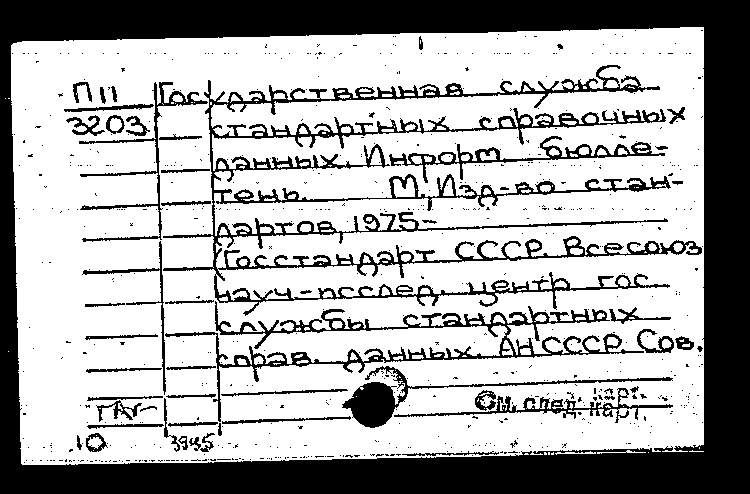 П11 Государственная служба
3203 стандартных справочных
данных. Информ. бюлле-
тень. М., Изд-во стан-
дартов, 1975-
(Госстандарт СССР. Всесоюз
науч.-исслед. центр гос.
службы стандартных
справ. данных. АН СССР. Сов.
См. след. карт.
10